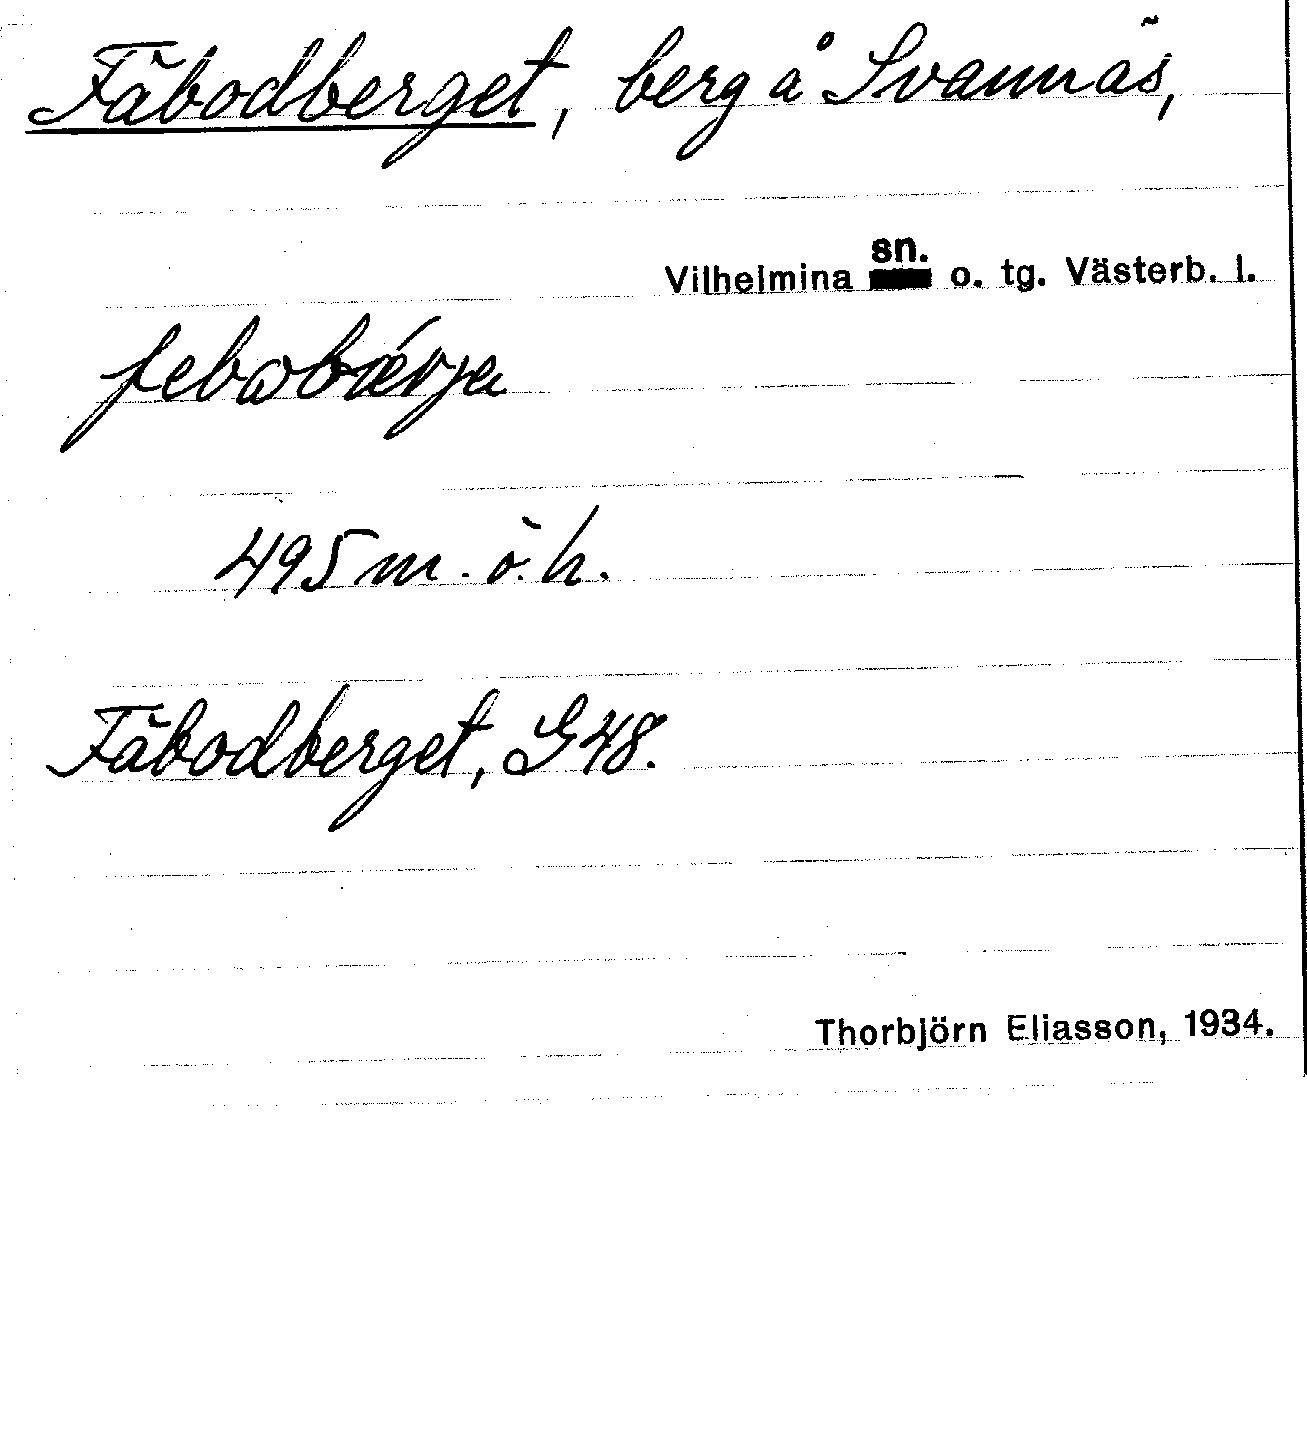 Fäbodberget, berg å Svannäs,
Vilhelmina sn. o. tg. Västerb. l.
495 m. ö. h.
Fäbodberget, G48.
Thorbjörn Eliasson, 1934.